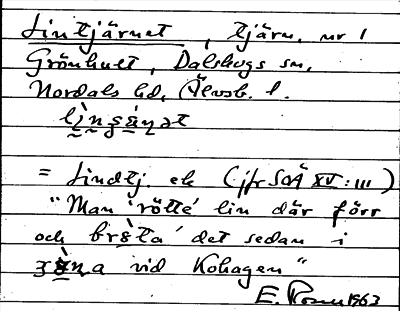 Lintjärnet, tjärn, nr 1
Grönhult, Dalskogs sn,
Nordals hd, Älvsb. l.
= Lindtj. ek (jfr SOÄ XV: III)
"Man 'rötte' lin där förr
och bröta' det sedan i
vid Kohagen"
E. 1963